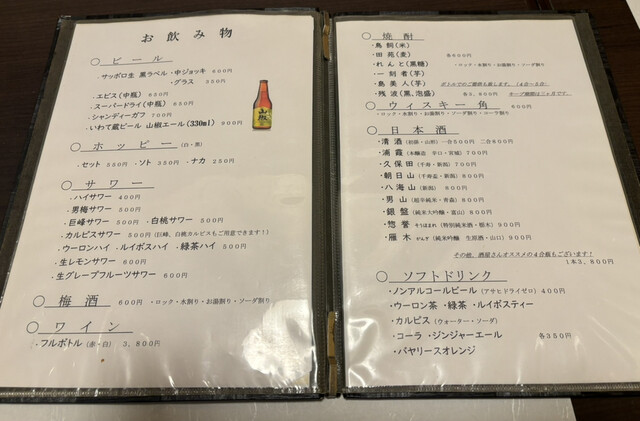 お飲み物
○ ビール
・サッポロ生 黒ラベル・中ジョッキ 600円
・グラス 350円
・エビス(中瓶) 650円
・スーパードライ(中瓶) 650円
・シャンディーガフ 700円
・いわて蔵ビール 山椒エール(330ml) 900円
山椒
○ ホッピー (白・黒)
・セット 550円 ・ソト 350円 ・ナカ 250円
○ サワー
・ハイサワー 400円
・男梅サワー 500円
・巨峰サワー 500円 ・白桃サワー 500円
・カルピスサワー 500円 (巨峰、白桃カルピスもご用意できます！)
・ウーロンハイ ・ルイボスハイ ・緑茶ハイ 500円
・生レモンサワー 600円
・生グレープフルーツサワー 600円
○ 梅酒 600円 ・ロック・水割り・お湯割り・ソーダ割り
○ ワイン
・フルボトル (赤・白) 3,800円
○ 焼酎
・鳥飼(米)
・田苑(麦) 各600円
・れんと(黒糖) ・ロック・水割り・お湯割り・ソーダ割り
・一刻者(芋)
・島美人(芋) ボトルでのご提供も致します。(4合～5合)
・残波(黒、泡盛) 各3,800円 キープ期間は三ヶ月です。
○ ウィスキー角 600円
・ロック・水割り・お湯割り・ソーダ割り・コーラ割り
○ 日本酒
・清酒 (初孫・山形) 一合500円 二合600円
・浦霞 (本醸造 辛口・宮城) 700円
・久保田 (千寿・新潟) 700円
・朝日山 (千寿盃・新潟) 800円
・八海山 (新潟) 600円
・男山 (超辛純米・青森) 800円
・銀盤 (純米大吟醸・富山) 800円
・惣誉 そうほまれ (特別純米酒・栃木) 900円
・雁木 がんぎ (純米吟醸 生原酒・山口) 900円
その他、酒屋さんオススメの4合瓶もございます！
1本3,800円
○ ソフトドリンク
・ノンアルコールビール (アサヒドライゼロ) 400円
・ウーロン茶 ・緑茶 ・ルイボスティー
・カルピス (ウォーター・ソーダ)
・コーラ ・ジンジャーエール 各350円
・バヤリースオレンジ